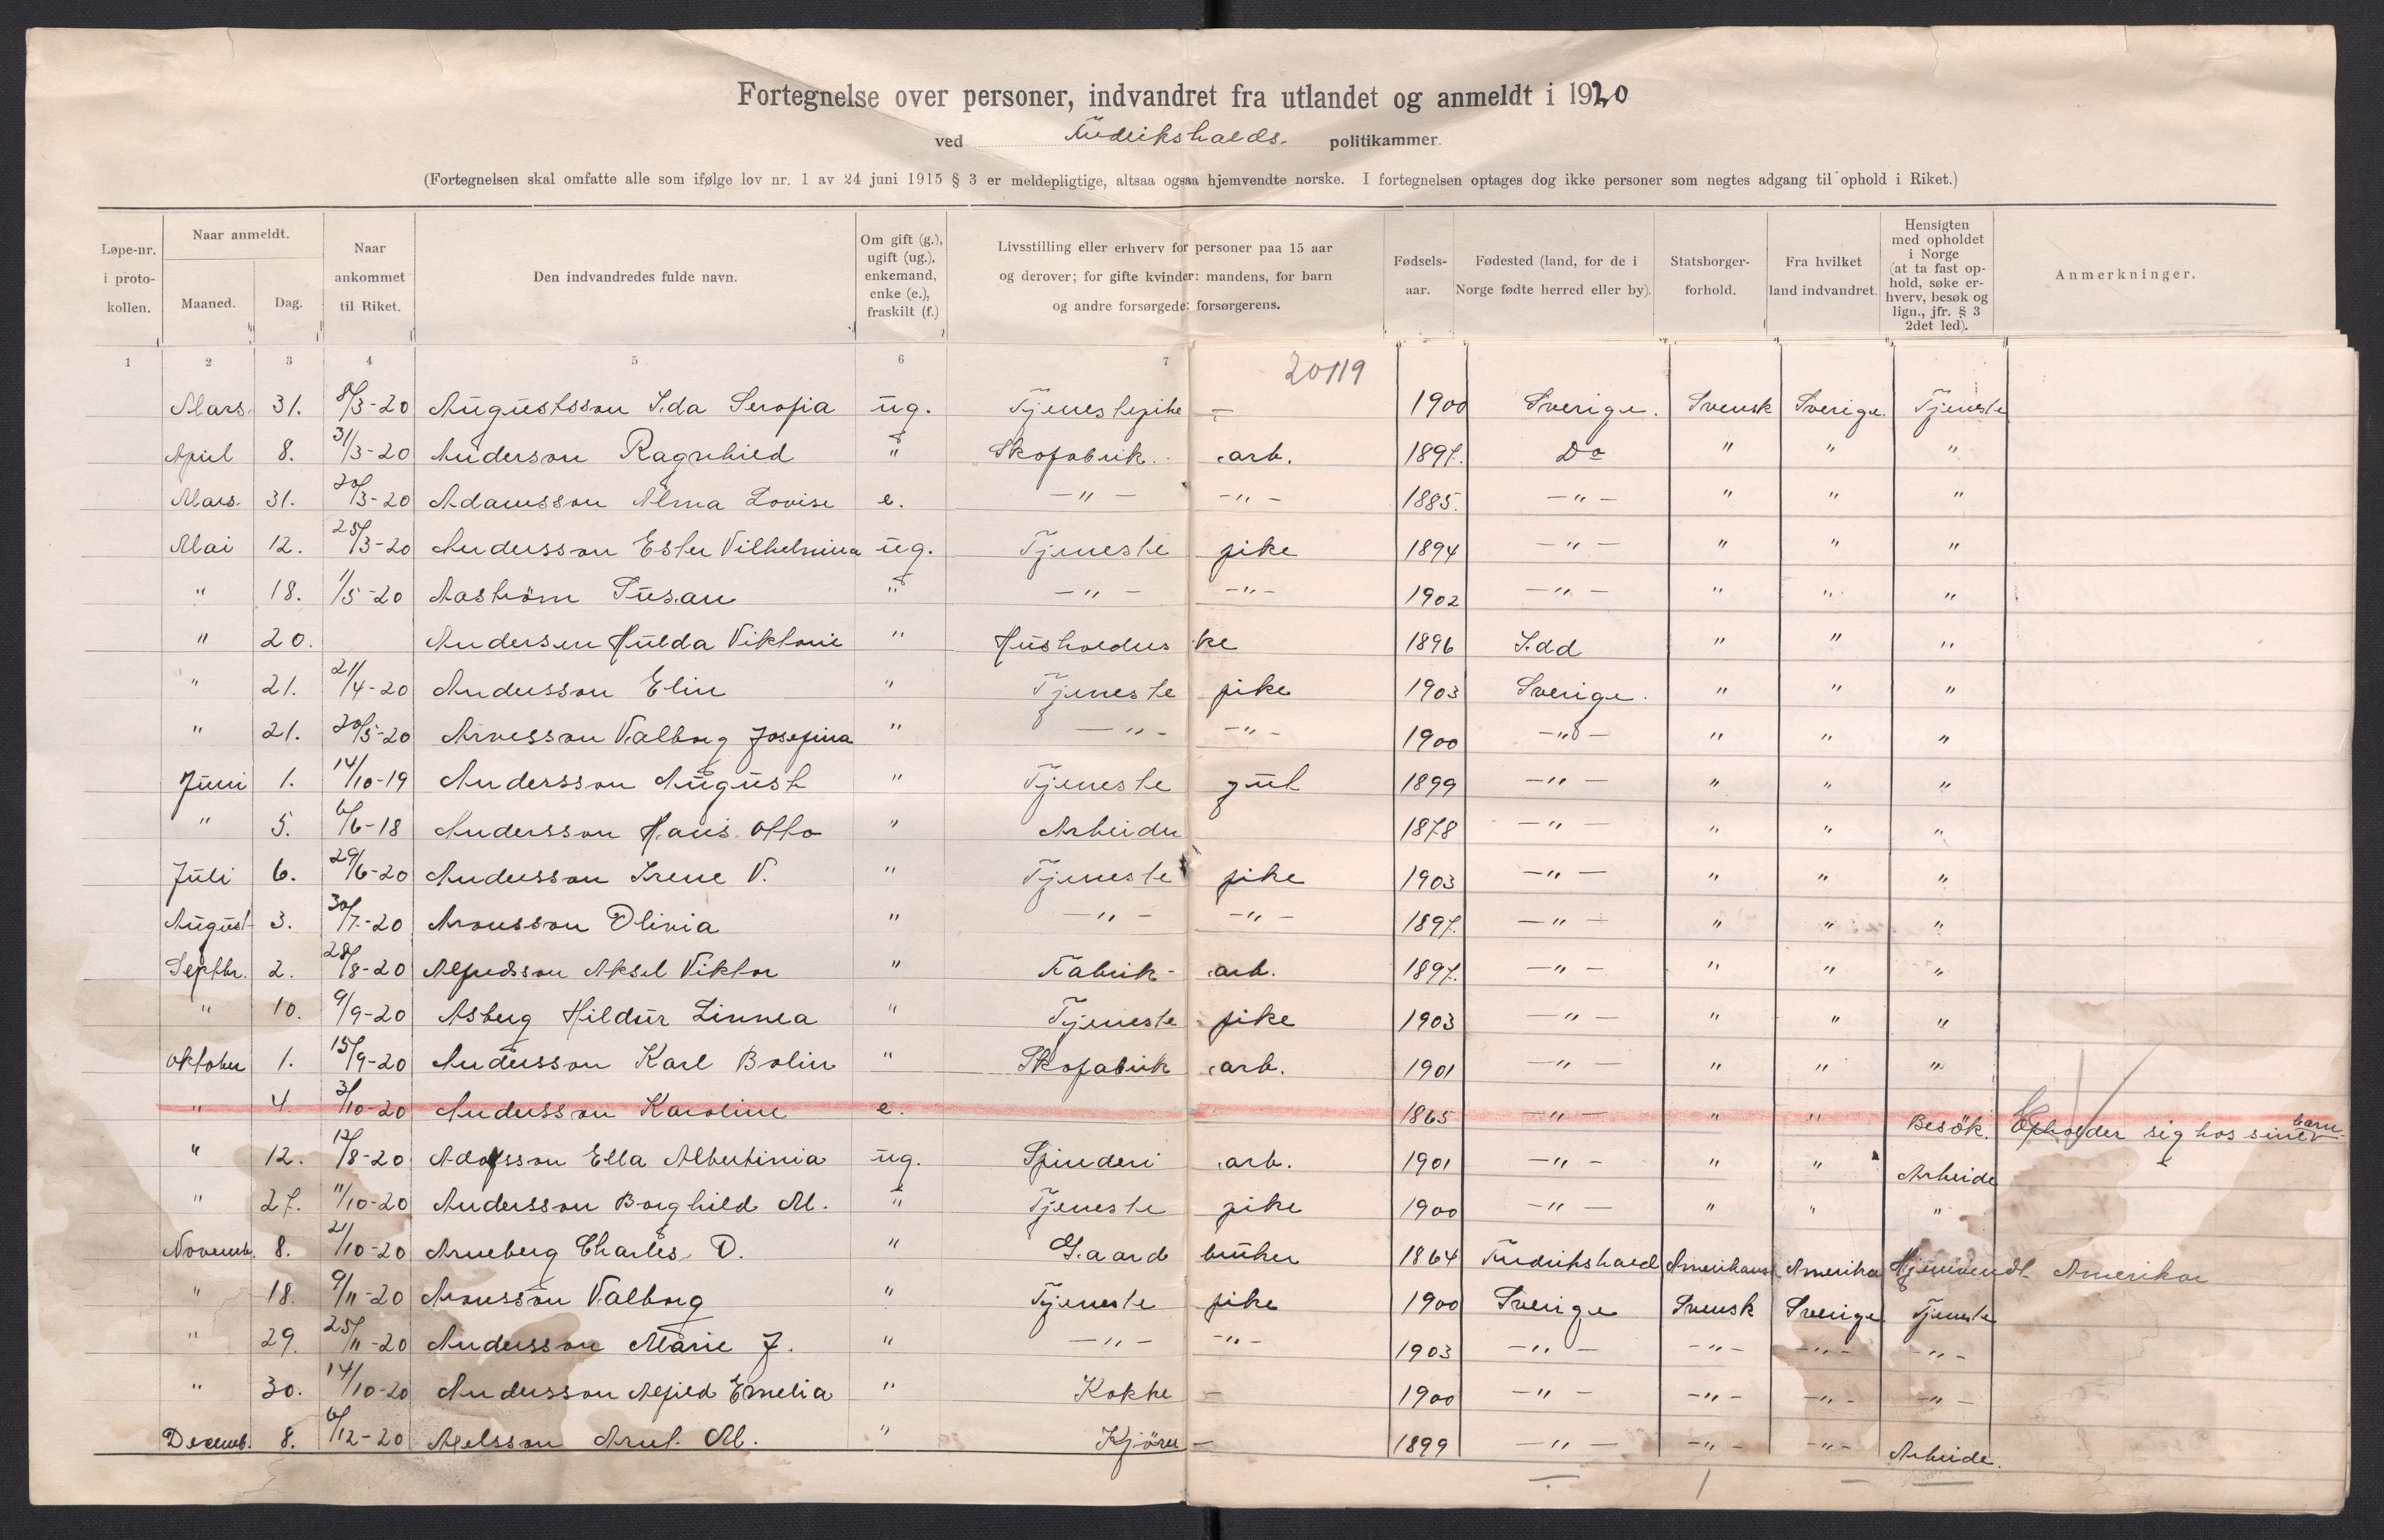 Fortegnelse over personer, indvandret fra utlandet og anmeldt i 1920
ved Fredrikshalds. politikammer.
(Fortegnelsen skal omfatte alle som ifølge lov nr. 1 av 24 juni 1915 § 3 er meldepligtige, altsaa ogsaa hjemvendte norske. I fortegnelsen optages dog ikke personer som negtes adgang til ophold i Riket.)
Løpe-nr. i proto-kollen. Naar anmeldt. Maaned. Dag. Naar ankommet til Riket. Den indvandredes fulde navn. Om gift (g.), ugift (ug.), enkemand, enke (e.), fraskilt (f.) Livsstilling eller erhverv for personer paa 15 aar og derover; for gifte kvinder: mandens, for barn og andre forsørgede: forsørgerens. Fødsels-aar. Fødested (land, for de i Norge fødte herred eller by). Statsborger-forhold. Fra hvilket land indvandret. Hensigten med opholdet i Norge (at ta fast op-hold, søke er-hverv, besøk og lign., jfr. § 3 2det led). Anmerkninger.
1 2 3 4 5 6 7
20119
Mars. 31. 8/3-20 Augustsson Ida Serofia ug. Tjenestepike — 1900 Sverige. Svensk Sverige. Tjeneste
April 8. 31/3-20 Anderson Ragnhild " Skofabrik. arb. 1897. Do " " "
Mars. 31. 20/3-20 Adamsson Alma Lovise e. —"— —"— 1885. —"— " " "
Mai 12. 25/3-20 Andersson Ester Vilhelmina ug. Tjeneste pike 1894 —"— " " "
" 18. 1/5-20 Aaström Susan " —"— —"— 1902 —"— " " "
" 20. Andersen Hulda Viktorie " Husholders ke 1896 Idd " " "
" 21. 21/4-20 Andersson Elin " Tjeneste pike 1903 Sverige. " " "
" 21. 20/5-20 Arnesson Valborg Josefina " —"— —"— 1900 —"— " " "
Juni 1. 14/10-19 Andersson August " Tjeneste gut 1899 —"— " " "
" 5. 6/6-18 Andersson Hans Otto " Arbeider 1878 —"— " " "
Juli 6. 29/6-20 Andersson Irene V. " Tjeneste pike 1903 —"— " " "
August 3. 30/7-20 Aronsson Olivia " —"— —"— 1897. —"— " " "
Septbr. 2. 28/8-20 Alfredsson Aksel Viktor " Fabrik- arb. 1897. —"— " " "
" 10. 9/9-20 Asberg Hildur Linnea " Tjeneste pike 1903 —"— " " "
Oktober 1. 15/9-20 Andersson Karl Bolin " Skofabrik arb. 1901 —"— " " "
" 4. 3/10-20 Andersson Karoline e. 1865 —"— " " Besök. Opholder sig hos sine barn
" 12. 12/8-20 Adolfsson Ella Albertinia ug. Spinderi arb. 1901 —"— " " Arbeide
" 27. 11/10-20 Andersson Borghild M. " Tjeneste pike 1900 —"— " " "
Novemb. 8. 21/10-20 Arneberg Charles O. " Gaard bruker 1864 Fredrikshald Amerikansk Amerika Hjemvendt Amerikar
" 18. 9/11-20 Aronsson Valborg " Tjeneste pike 1900 Sverige Svensk Sverige Tjeneste
" 29. 25/11-20 Andersson Marie J. " —"— —"— 1903 —"— —"— —"— —"—
" 30. 14/10-20 Andersson Alfild Emelia " Kokke — 1900 —"— —"— —"— —"—
Decemb. 8. 6/12-20 Axelsson Arnt. M. " Kjörer — 1899 —"— —"— —"— Arbeide.